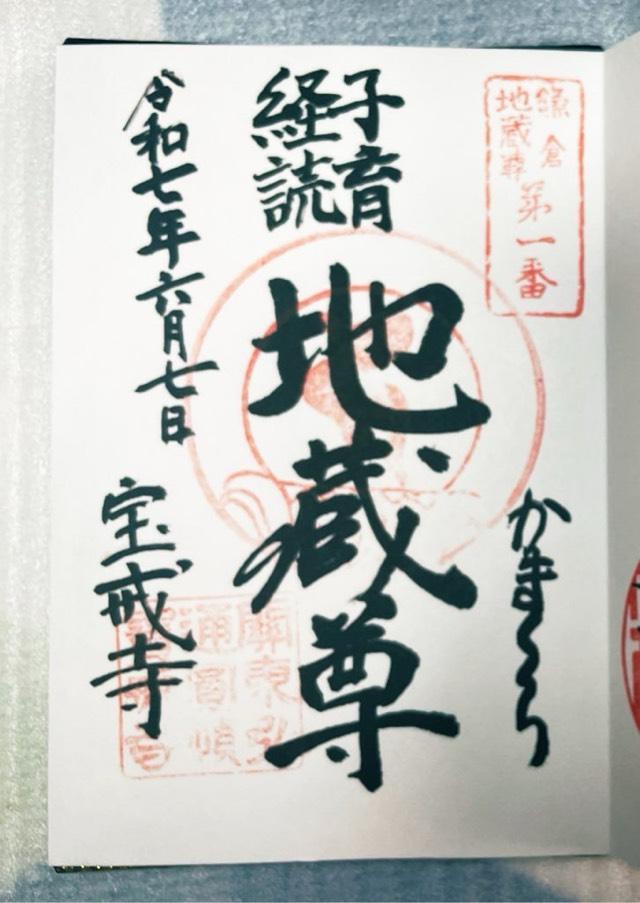 鎌倉
地蔵尊
第一番
子育
経読
地蔵尊
かまくら
令和七年六月七日
宝戒寺